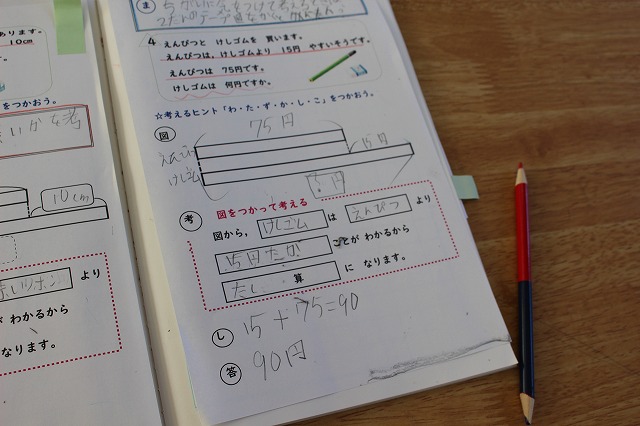 あります。
10cm
をつかおう。
10cm
より
わかるから
なります。
ま
4 えんぴつと けしゴムを 買います。
えんぴつは、けしゴムより 15円 やすいそうです。
えんぴつは 75円です。
けしゴムは 何円ですか。
☆考えるヒント「わ・た・ず・か・し・こ」をつかおう。
図
75円
えんぴつ
15円
けしゴム
?円
考 図をつかって考える
図から、 けしゴム は えんぴつ より
15円たかい ことが わかるから
たし 算 に なります。
し 15+75=90
答 90円